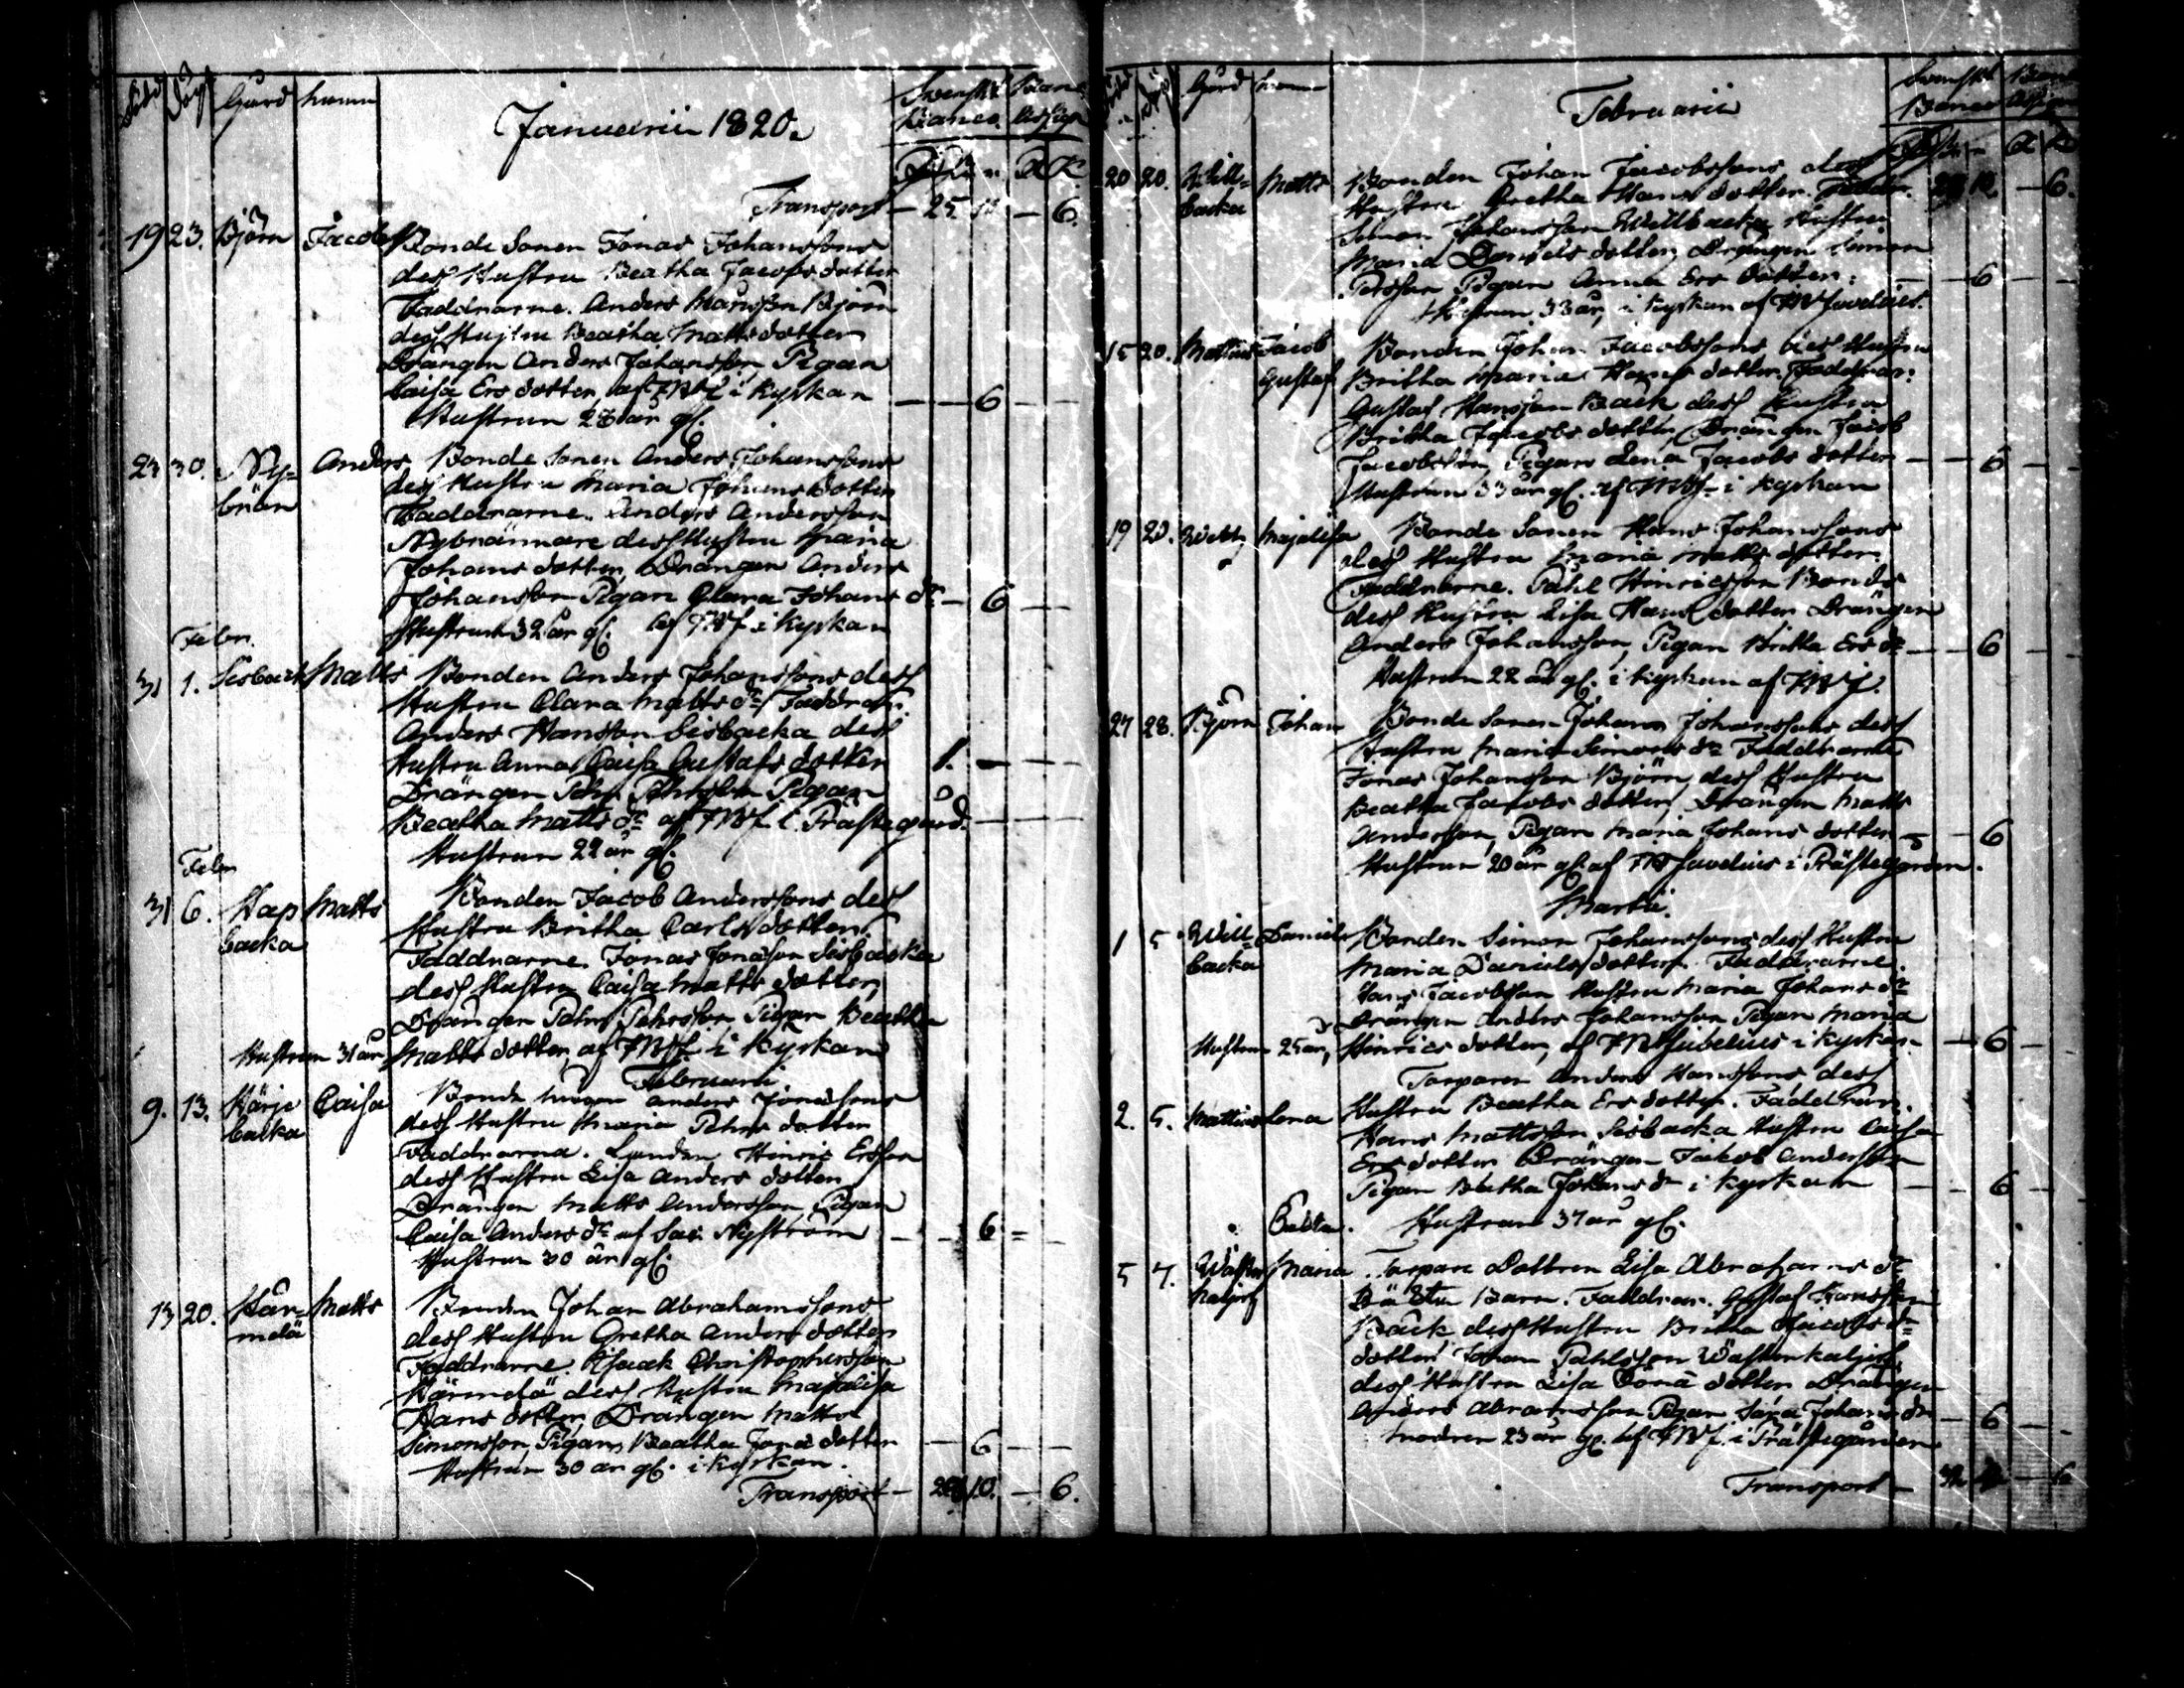 Född Döpt Gård namn
Januarii 1820.
Svenskt Banco. Banc Assign
Transport — 25 10 — 6.
19 23. Björn Jacob Bonde Sonen Jonas Johanssons
dess Hustru Beatha Jacobs dotter
Faddrarne. Anders Månsson Björn
dess Hustru Beatha Matts dotter
Drängen Anders Johansson Pigan
Caisa Ers dotter, af i Kyrkan — — 6 — —
Hustrun 28 år gl.
23 30. Ny- Anders Bonde Sonen Anders Johanssons
brän dess Hustru Maria Johans dotter
Faddrarne. Anders Andersson
Nybrännare dess Hustru Maria
Johans dotter, Drängen Anders
Johansson Pigan Clara Johans dr — 6 — —
Hustrun 32 år gl. af i Kyrkan
Febr.
31 1. Sisback Matts Bonden Anders Johanssons dess
Hustru Clara Matts dr Faddrar.
Anders Hansson Sisbacka dess
Hustru Anna Caisa Gustafs dotter 1. — — —
Drängen Pehr Pehrsson Pigan
Beatha Matts dr af i Prästegård. — — —
Hustrun 22 år gl.
Febr
31 6. Kap Matts Bonden Jacob Anderssons dess
backa Hustru Britha Carls dotter.
Faddrarne. Jonas Jonasson Sisbacka
dess Hustru Caisa Matts dotter,
Drängen Pehr Pehrsson Pigan Beatha
Hustrun 31 år Matts dotter, af i Kyrkan
Februarii
9. 13. Härje Caisa Bonde Anders Jonassons
backa dess Hustru Maria Pehrs dotter
Faddrarna. Hinric Ersson
dess Hustru Lisa Anders dotter
Drängen Matts Andersson Pigan
Caisa Anders dr af Sac. Nyström — — 6 =
Hustrun 30 år gl.
13 20. Matts Bonden Johan Abrahamssons
dess Hustru Gretha Anders dotter
Faddrarne. Isaak Christophersson
dess Hustru Majalisa
Hans dotter, Drängen Matts
Simonsson, Pigan Beatha Jona dotter — 6 — —
Hustrun 30 år gl. i Kyrkan.
Transport — 28 10. — 6.
Gård
Februarii
Svenskt Banco
20 20. Will- Matts Bonden Johan Jacobssons dess
backa Hustru Gretha Hans dotter. 28 10 — 6.
Simon Johansson Willbacka, Hustru
Maria Daniels dotter, Drängen Simon
Persson Pigan Anna Ers dotter: — — 6 — —
Hustrun 33 år, i Kyrkan af
15 20. Mattus Jacob Bonden Johan Jacobssons dess Hustru
Gustaf Britha Maria Hans dotter Faddrar:
Gustaf Hansson Back dess Hustru
Britha Jacobs dotter, Drängen Jacob
Jacobsson, Pigan Lena Jacobs dotter — — 6 — —
Hustrun 33 år gl. af i Kyrkan
19 20. Majalisa Bonde Sonen Hans Johanssons
dess Hustru Maria Matts dotter.
Faddrarne. Pahl Hinricsson Bonde
dess Hustru Lisa Hans dotter Drängen
Anders Johansson, Pigan Britha Ers dr — — 6 —
Hustrun 22 år gl. i Kyrkan af
27 28. Björn Johan Bonde Sonen Johan Johanssons dess
Hustru Maria Simons dr Faddrarne
Jonas Johansson Björn, dess Hustru
Beatha Jacobs dotter, Drängen Matts
Andersson, Pigan Maria Johans dotter — — 6
Hustrun 20 år gl. af i Prästegården.
Martii.
1 5 Will- Daniel Bonden Simon Johanssons dess Hustru
backa Maria Daniels dotter. Faddrarne.
Hans Jacobsson Hustru Maria Johans dr
Drängen Anders Johansson Pigan Maria
Hustrun 25 år, Hinrics dotter, af i Kyrkan — 6 —
Torparen Anders Hanssons dess
2. 5. Mattus Lena Hustru Beatha Ers dotter. Faddrar.
Hans Mattsson Sisbacka Hustru Caisa
Ers dotter Drängen Jacob Andersson
Pigan Beatha Johans dr i Kyrkan — — 6 —
Hustrun 37 år gl.
5 7. Maria Torpare Dottren Lisa Abrahams dr
Oäkta Barn. Faddrar. Gustaf Hansson
Back dess Hustru Britha Jacobs dr
dotter Johan Pahlsson
dess Hustru Lisa Jona dotter Drängen
Anders Abramsson Pigan Sara Johans dr — 6 —
Modren 23 år gl. af i Prästegården
Transport — — 6